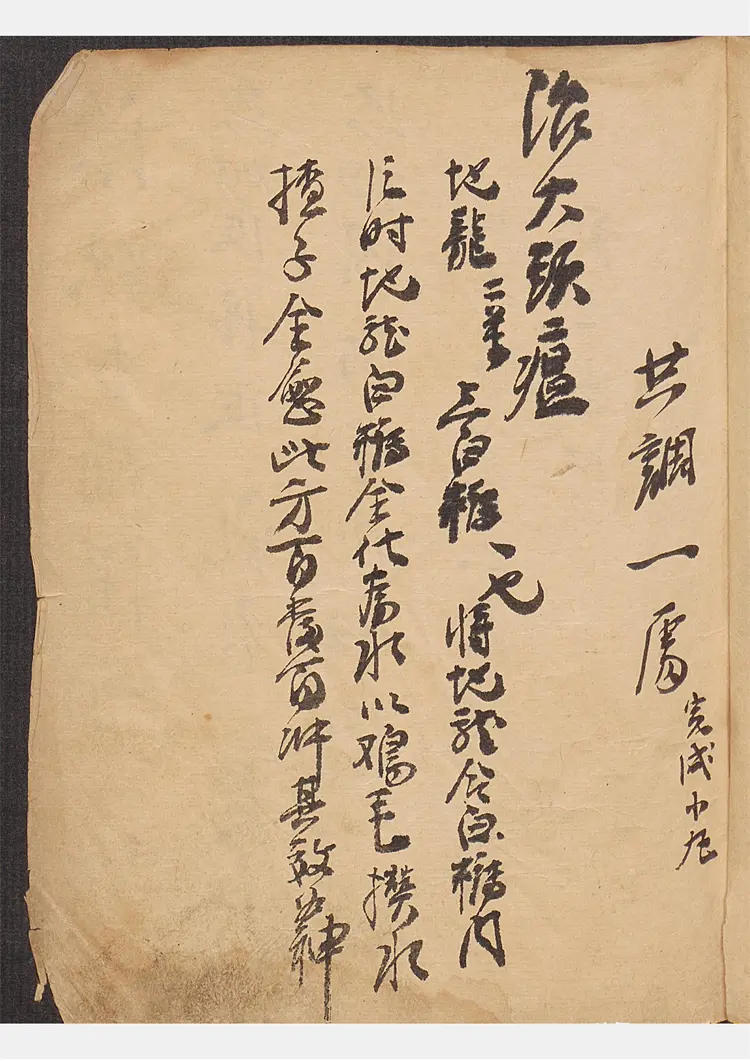 共調一處 完成小丸
治大頭瘟
地龍二条 上白糖 一七 將地龍合白糖內
片时地龍白糖全化為水以鳮毛搽水
搽子全愈此方百發百冲其效如神